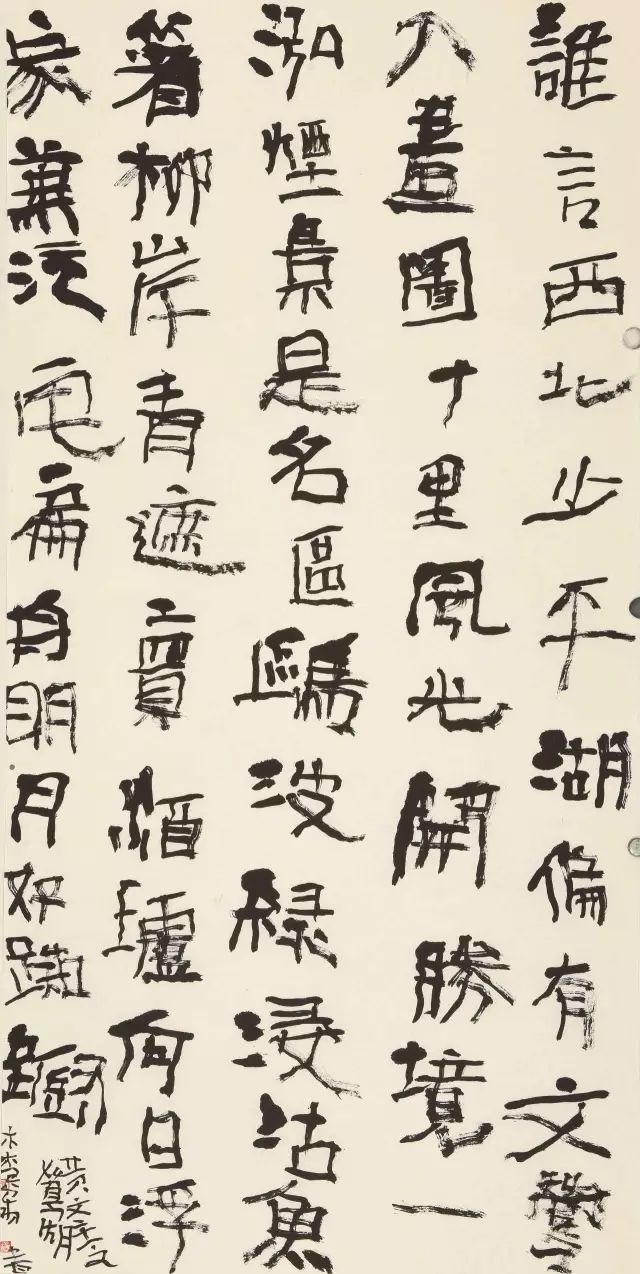 誰言西北少平湖偏有文
入畫圖十里風光開勝境一
泓煙景是名區鷗波綠浸沽魚
箬柳岸青遮賣酒壚何日浮
家兼泛宅扁舟明月好踟躕